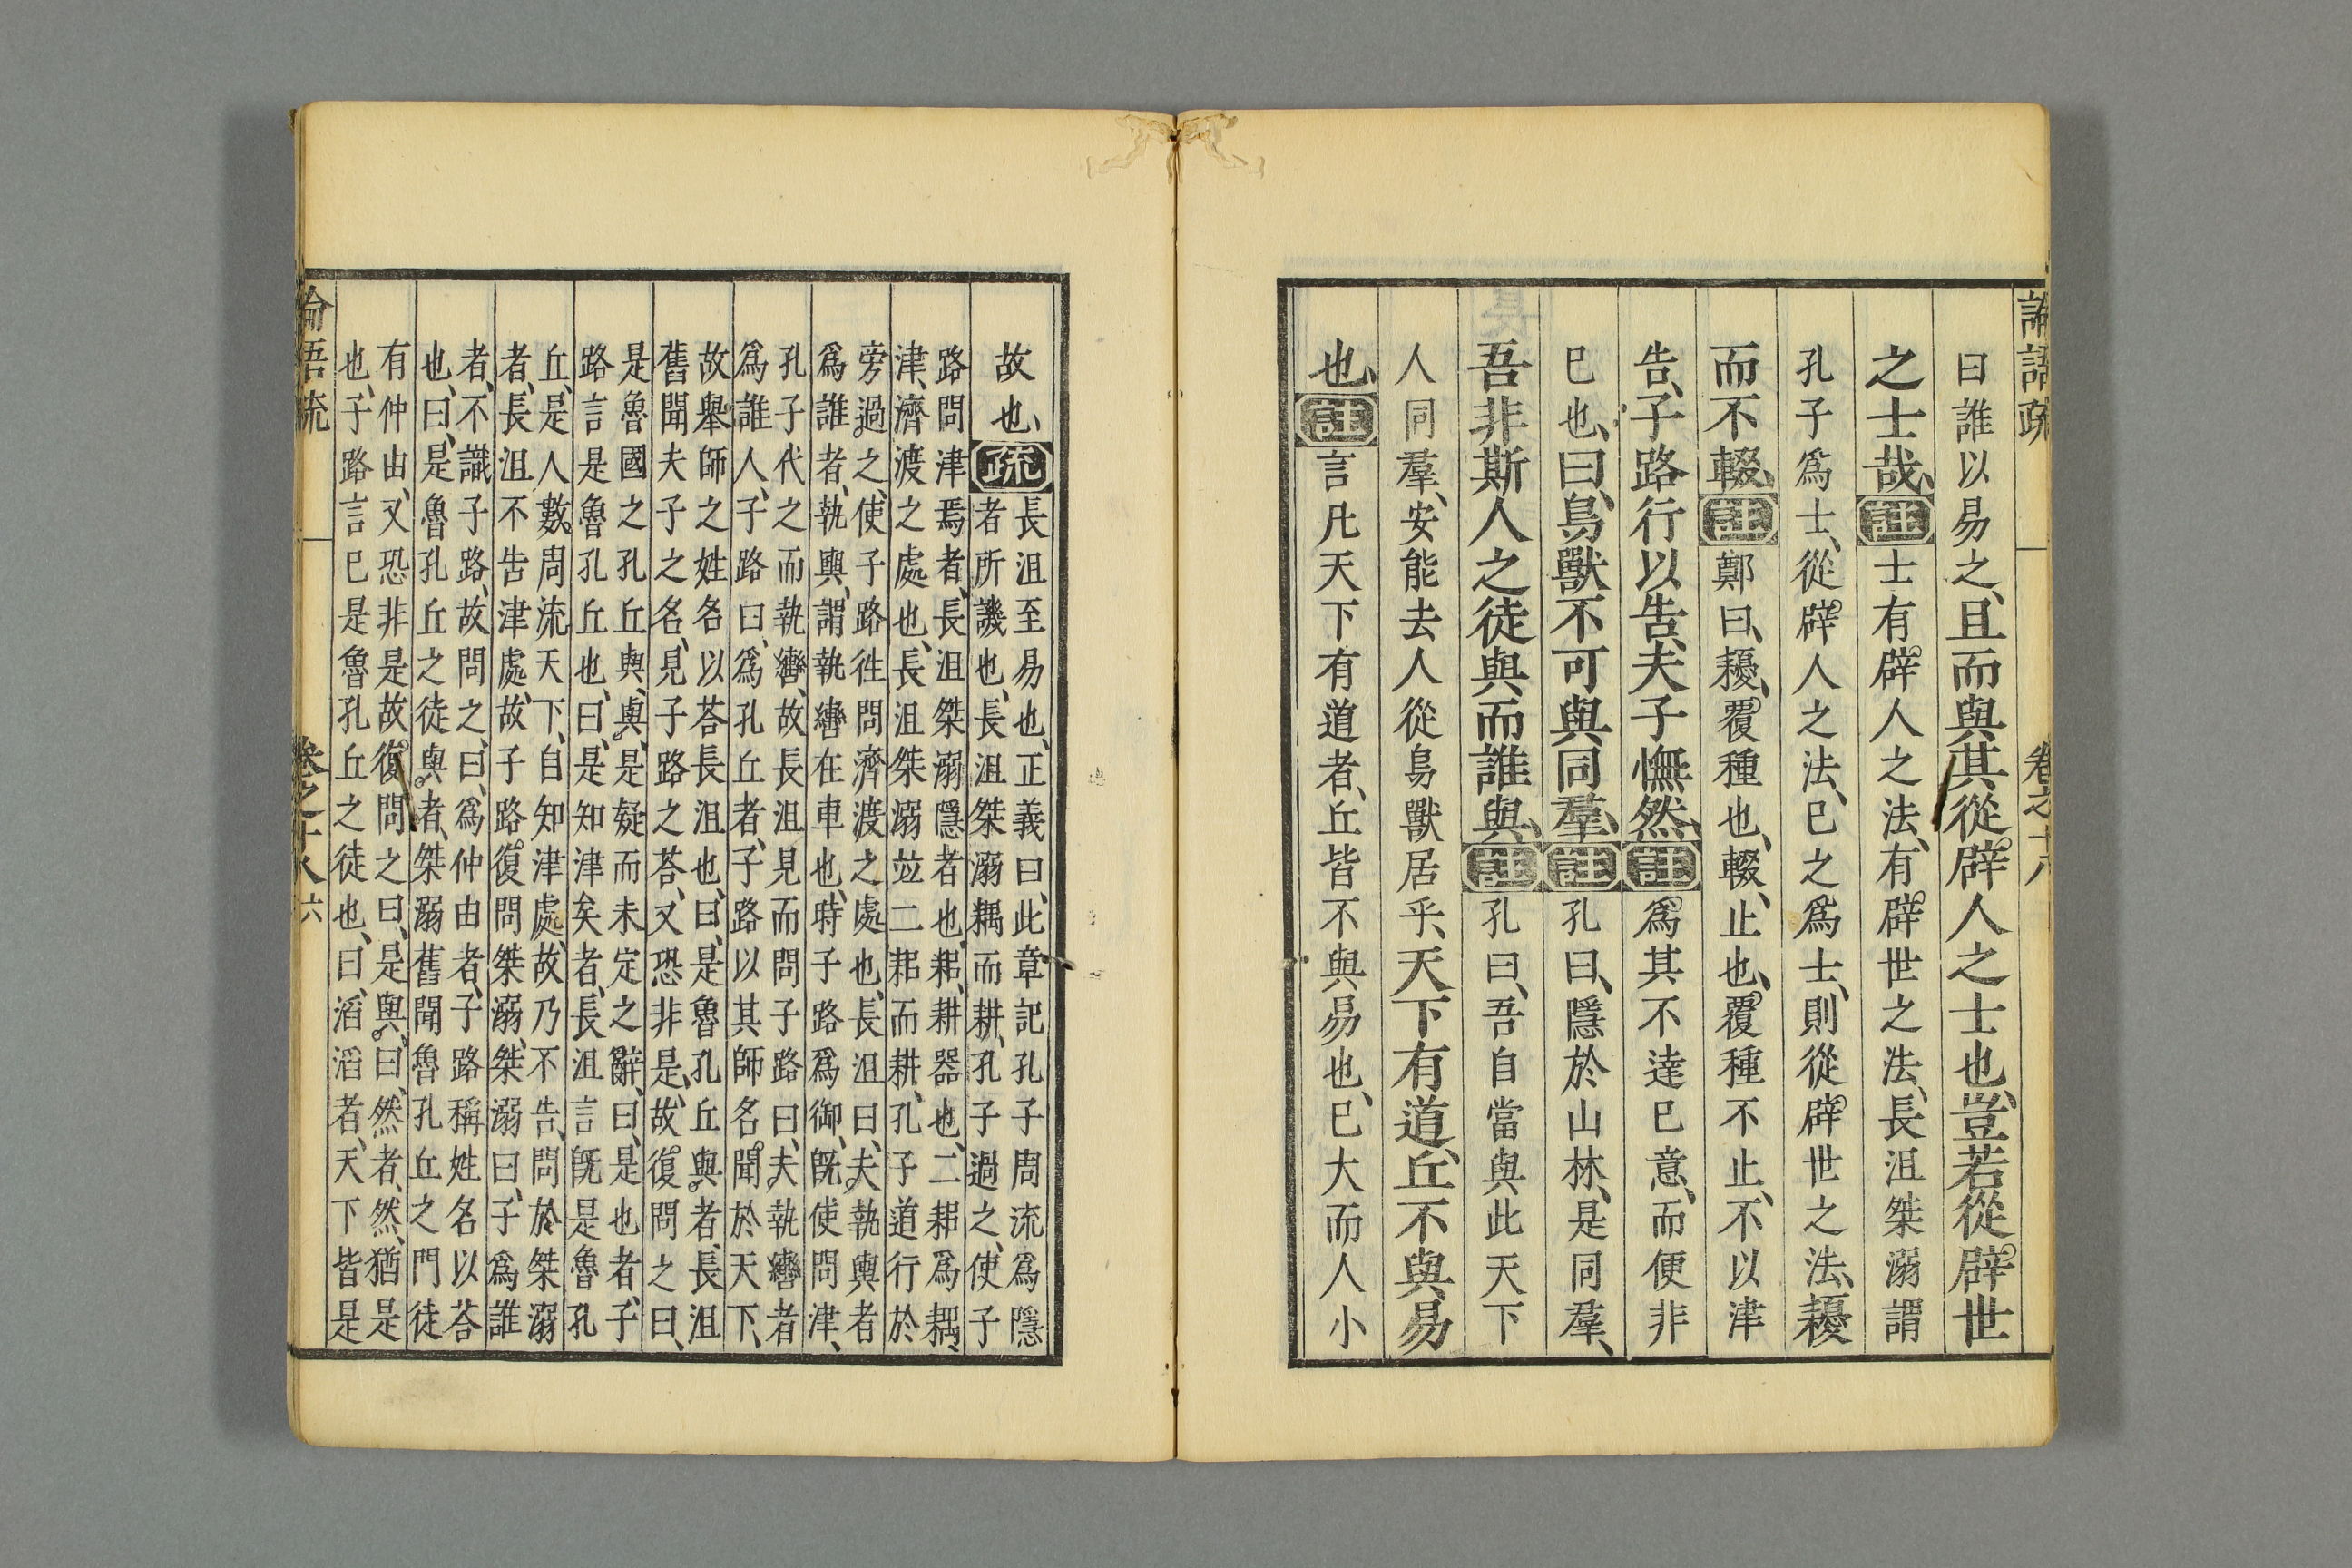 論語疏 卷之十八
曰誰以易之、且而與其從辟人之士也、豈若從辟世
之士哉、註士有辟人之法、有辟世之法、長沮桀溺謂
孔子爲士、從辟人之法、已之爲士、則從辟世之法、耰
而不輟、註鄭曰、耰、覆種也、輟、止也、覆種不止、不以津
告、子路行以告、夫子憮然、註爲其不達已意、而便非
已也、曰、鳥獸不可與同羣、註孔曰、隱於山林、是同羣、
吾非斯人之徒與、而誰與、註孔曰、吾自當與此天下
人同羣、安能去人從鳥獸居乎、天下有道、丘不與易
也、註言凡天下有道者、丘皆不與易也、已大而人小
故也、疏
長沮至易也、正義曰、此章記孔子周流爲隱
者所譏也、長沮桀溺耦而耕、孔子過之、使子
路問津焉者、長沮桀溺隱者也、耜、耕器也、二耜爲耦、
津、濟渡之處也、長沮桀溺竝二耜而耕、孔子道行於
旁過之、使子路徃問濟渡之處也、長沮曰、夫執輿者
爲誰者、執輿、謂執轡在車也、時子路爲御、旣使問津、
孔子代之而執轡、故長沮見而問子路曰、夫執轡者
爲誰人、子路曰、爲孔丘者、子路以其師名聞於天下、
故舉師之姓名以荅長沮也、曰、是魯孔丘與者、長沮
舊聞夫子之名、見子路之荅、又恐非是、故復問之曰、
是魯國之孔丘與、與、是疑而未定之辭、曰、是也者、子
路言是魯孔丘也、曰、是知津矣者、長沮言旣是魯孔
丘、是人數周流天下、自知津處、故乃不告、問於桀溺
者、長沮不告津處、故子路復問桀溺、桀溺曰、子爲誰
者、不識子路、故問之、曰、爲仲由者、子路稱姓名以荅
也、曰、是魯孔丘之徒與者、桀溺舊聞魯孔丘之門徒
有仲由、又恐非是、故復問之曰、是與、曰、然者、然、猶是
也、子路言已是魯孔丘之徒也、曰、滔滔者、天下皆是
論語疏 卷之十八 六